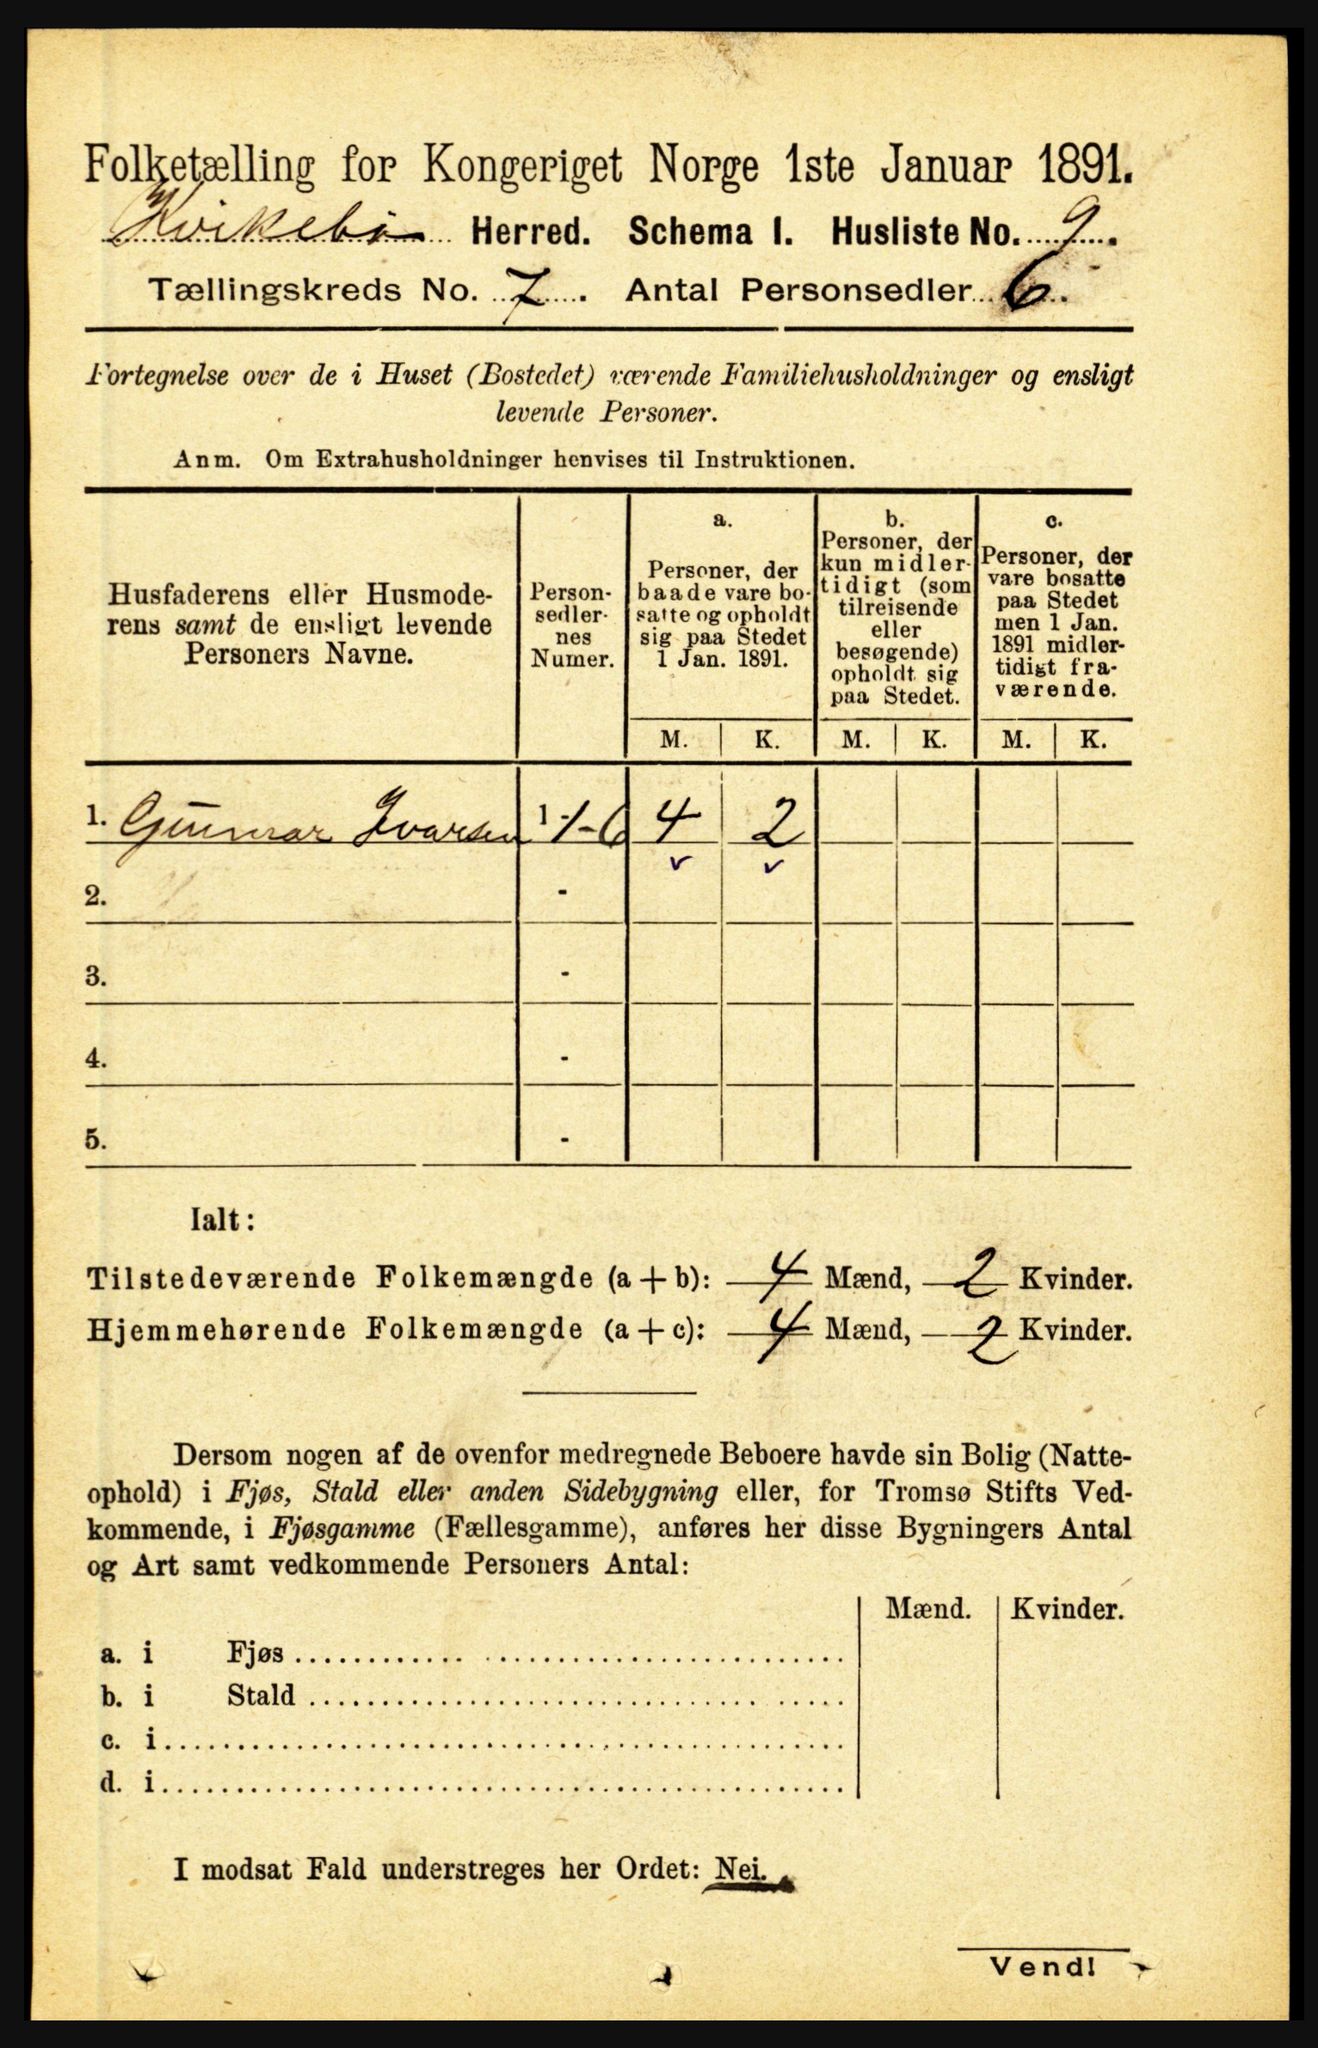 Folketælling for Kongeriget Norge 1ste Januar 1891.
Kvikebø Herred. Schema I. Husliste No. 9.
Tællingskreds No. 7. Antal Personsedler 6.
Fortegnelse over de i Huset (Bostedet) værende Familiehusholdninger og ensligt
levende Personer.
Anm. Om Extrahusholdninger henvises til Instruktionen.
Husfaderens eller Husmode-
rens samt de ensligt levende
Personers Navne.
Person-
sedler-
nes
Numer.
a.
Personer, der
baade vare bo-
satte og opholdt
sig paa Stedet
1 Jan. 1891.
b.
Personer, der
kun midler-
tidigt (som
tilreisende
eller
besøgende)
opholdt sig
paa Stedet.
c.
Personer, der
vare bosatte
paa Stedet
men 1 Jan.
1891 midler-
tidigt fra-
værende.
M. K. M. K. M. K.
1. Gunnar Ivarsen 1-6 4 2
2. -
3. -
4. -
5. -
Ialt:
Tilstedeværende Folkemængde (a+b): 4 Mænd, 2 Kvinder.
Hjemmehørende Folkemængde (a+c): 4 Mænd, 2 Kvinder.
Dersom nogen af de ovenfor medregnede Beboere havde sin Bolig (Natte-
ophold) i Fjøs, Stald eller anden Sidebygning eller, for Tromsø Stifts Ved-
kommende, i Fjøsgamme (Fællesgamme), anføres her disse Bygningers Antal
og Art samt vedkommende Personers Antal:
Mænd. Kvinder.
a. i Fjøs
b. i Stald
c. i
d. i
I modsat Fald understreges her Ordet: Nei.
Vend!